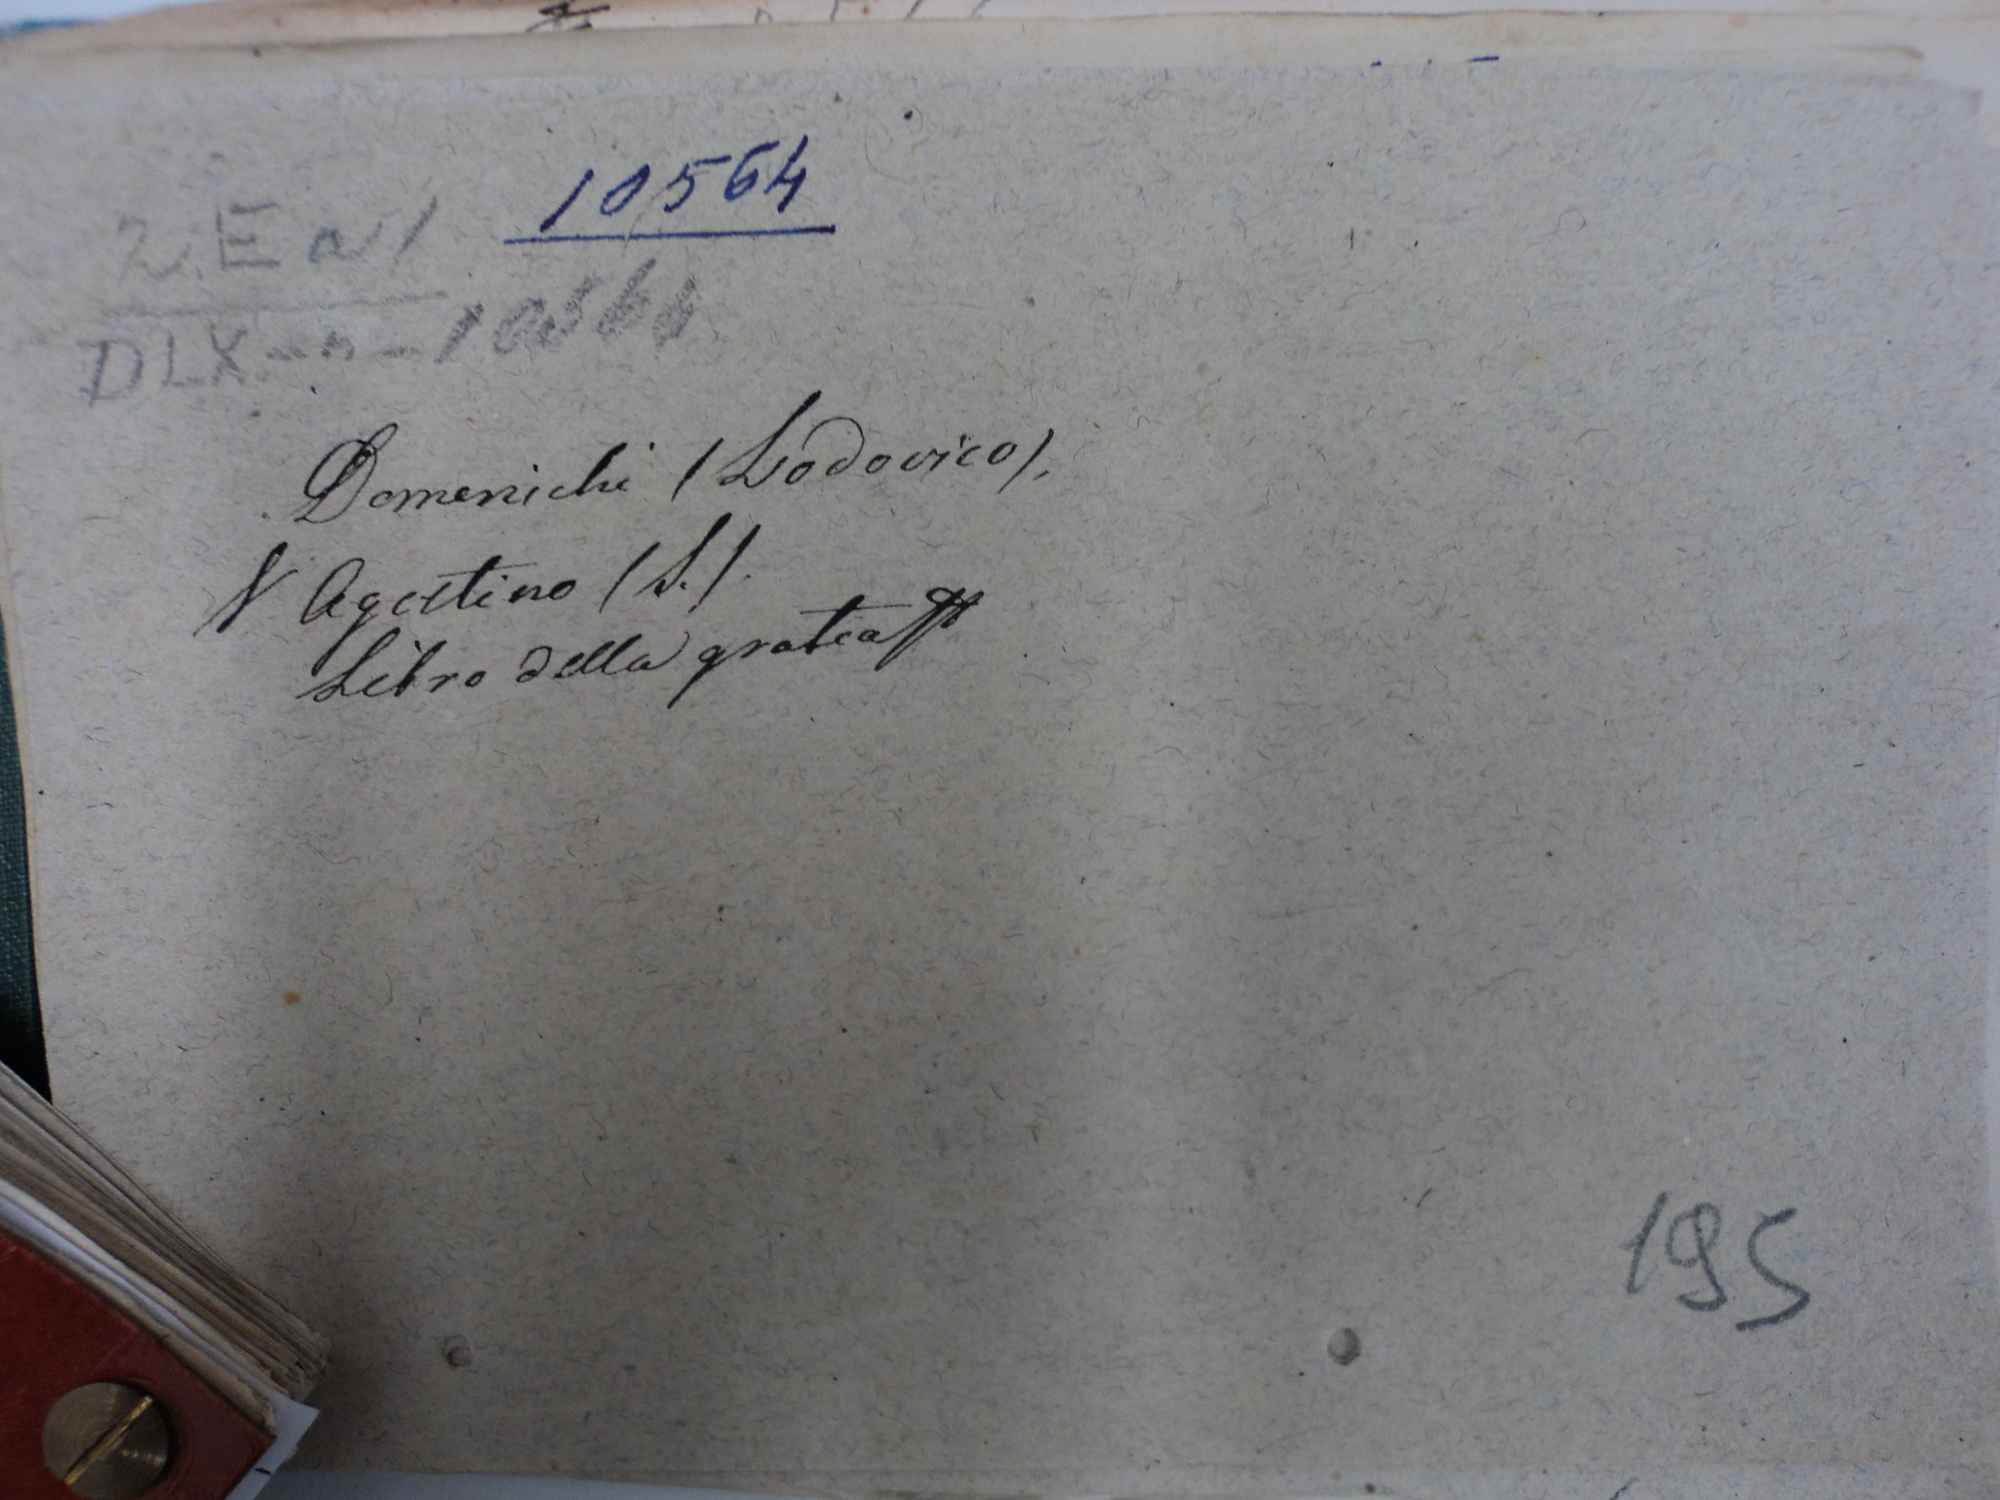 10564
2. E a 1
DLX--n-10564
Domenichi (Lodovico).
V Agostino (S.).
Libro della gratia
195